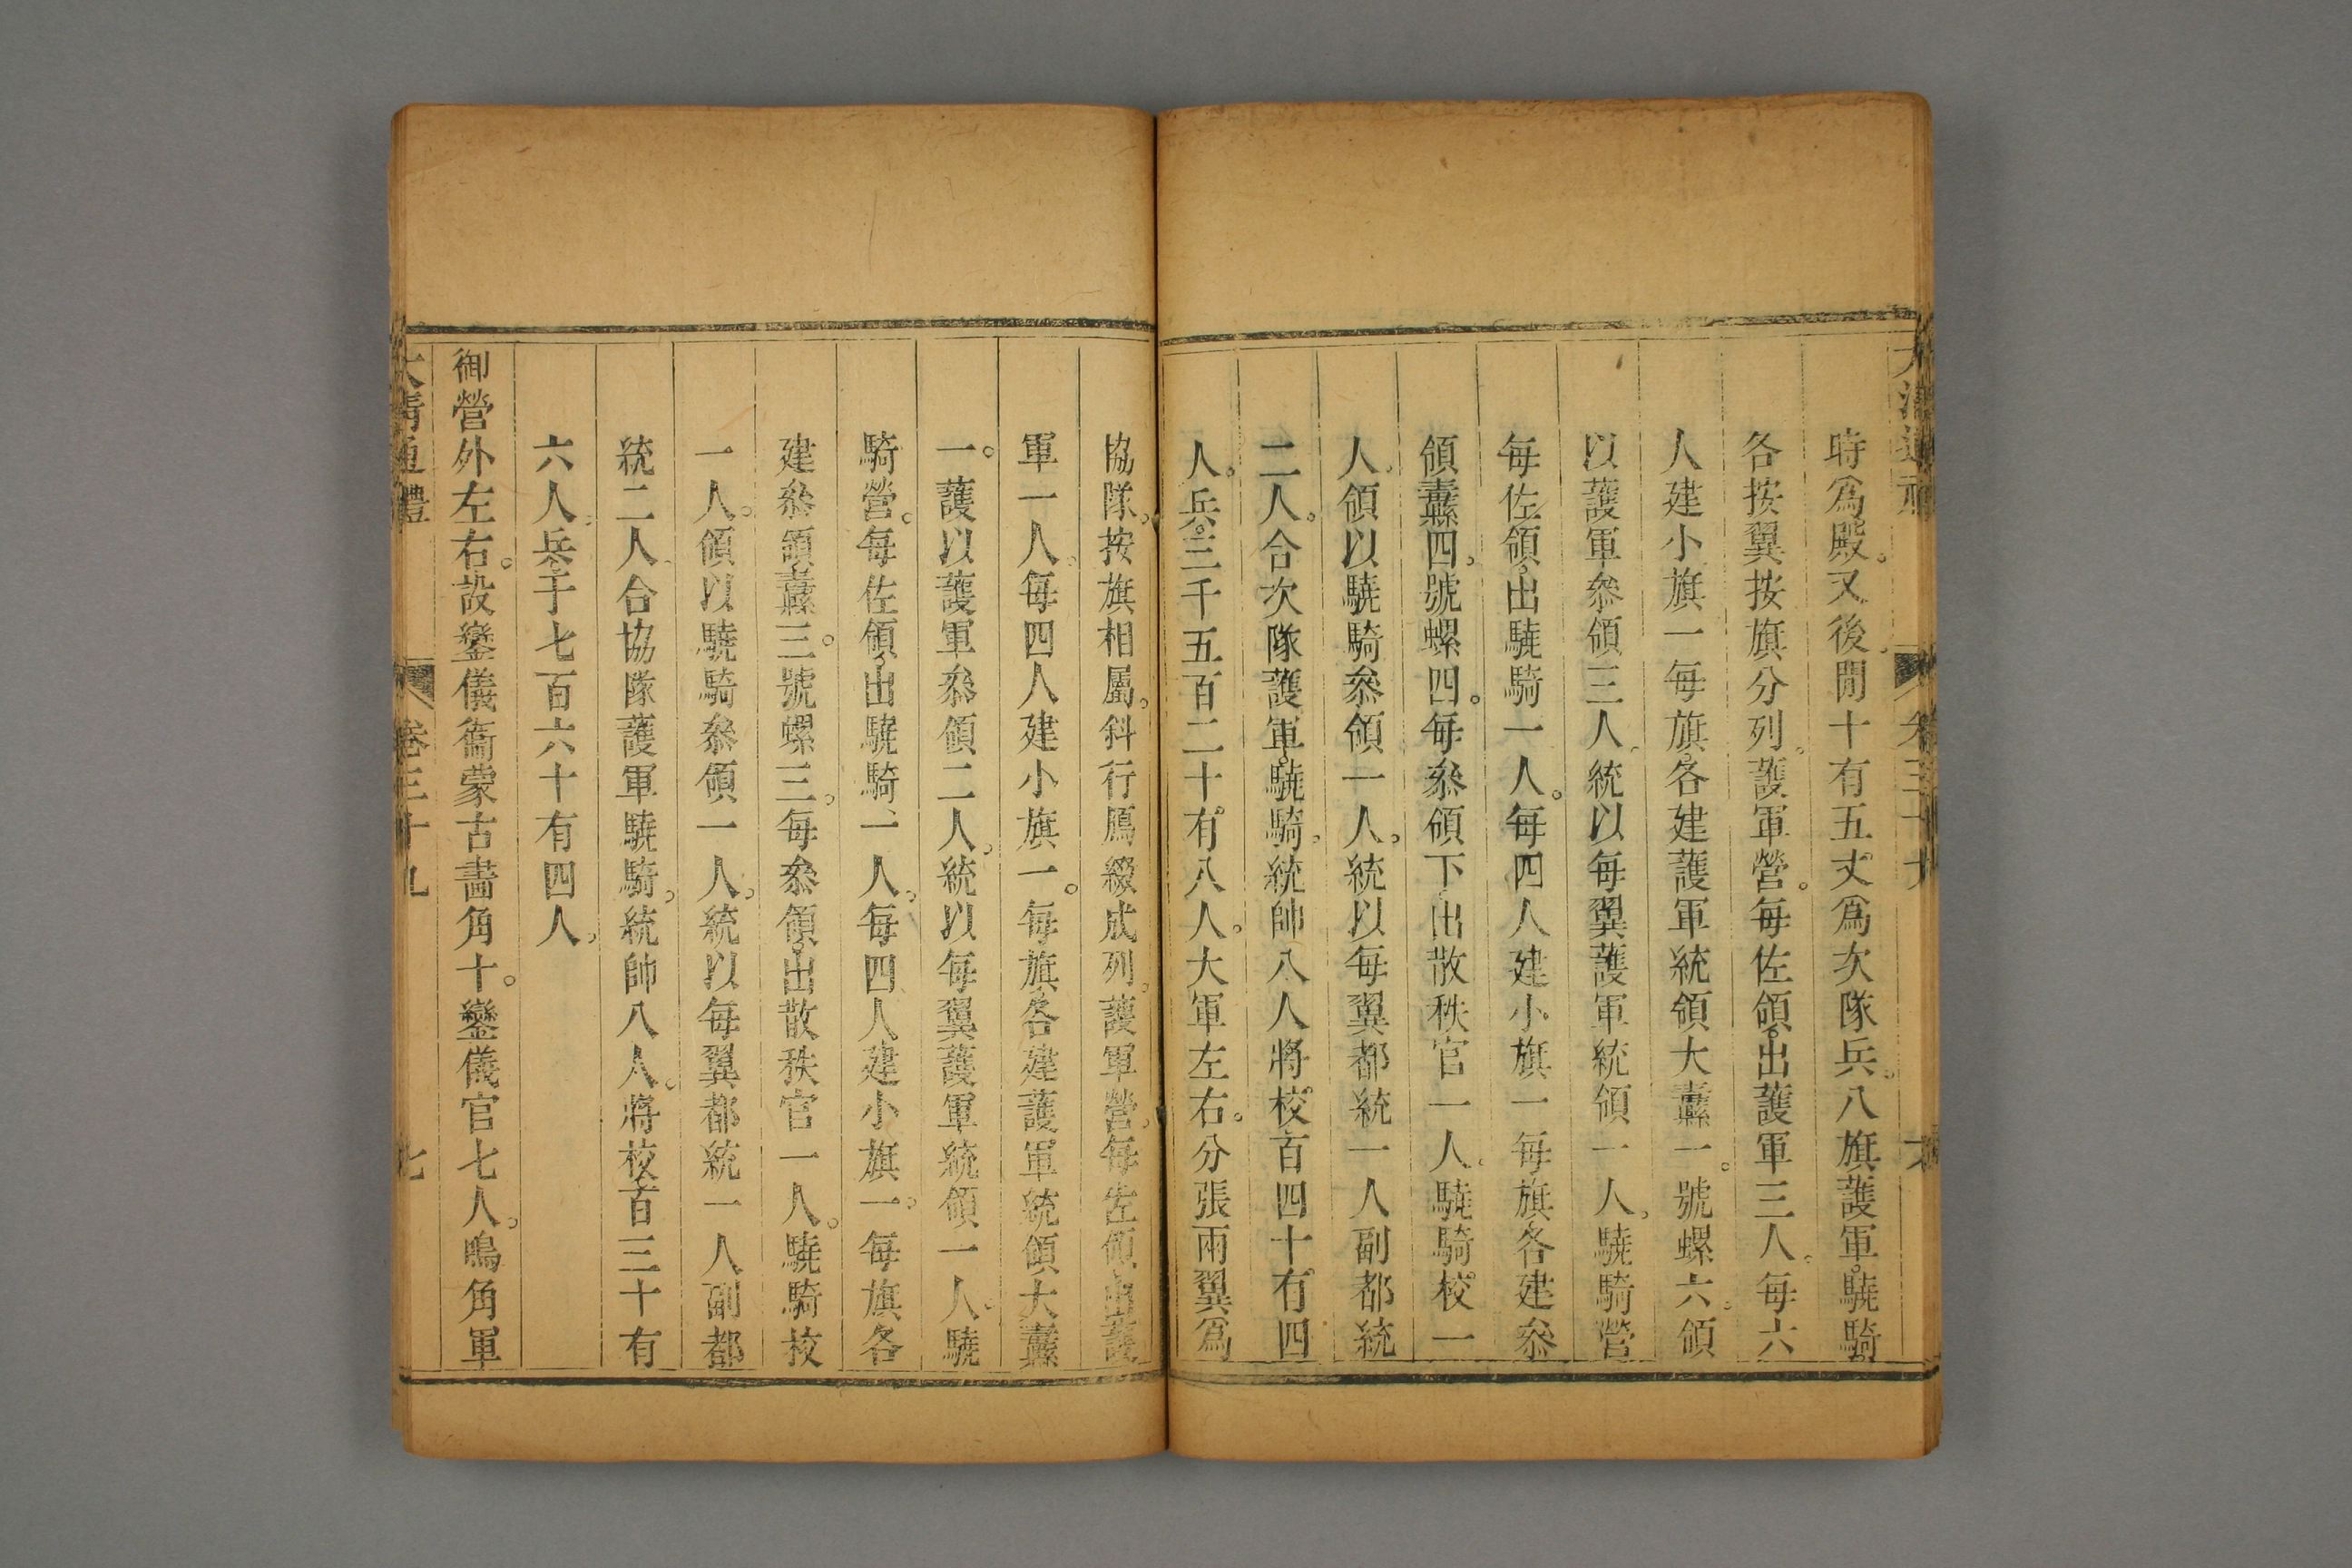 時爲殿。又後閒十有五丈爲次隊兵。八旗護軍。驍騎。
各按翼按旗分列。護軍營。每佐領。出護軍三人。每六
人建小旗一每旗。各建護軍統領大纛一。號螺六。領
以護軍叅領三人。統以每翼護軍統領一人。驍騎營
每佐領。出驍騎一人。每四人建小旗一每旗各建叅
領纛四。號螺四。每叅領下出散秩官一人。驍騎校一
人。領以驍騎叅領一人。統以每翼都統一人副都統
二人。合次隊護軍。驍騎。統帥八人將校。百四十有。四
人。兵。三千五百二十有。八人。大軍左右。分張兩翼爲
協隊。按旗相屬。斜行鴈綴成列。護軍營。每佐領出護
軍一人。每四人建小旗一。每旗。各建護軍統領大纛
一。護以護軍叅領二人。統以每翼護軍統領一人。驍
騎營。每佐領。出驍騎、一人。每四人建小旗一。每旗各
建叅領纛三。號螺三。每叅領。出散秩官一人。驍騎校
一人。領以驍騎叅領一人。統以每翼都統一人副都
統二人。合協隊護軍驍騎。統帥八人。將校百三十有
六人。兵千七百六十有四人。
御營外左右。設鑾儀衞蒙古畵角十。鑾儀官七人。鳴角軍
大清通禮 卷三十九 七